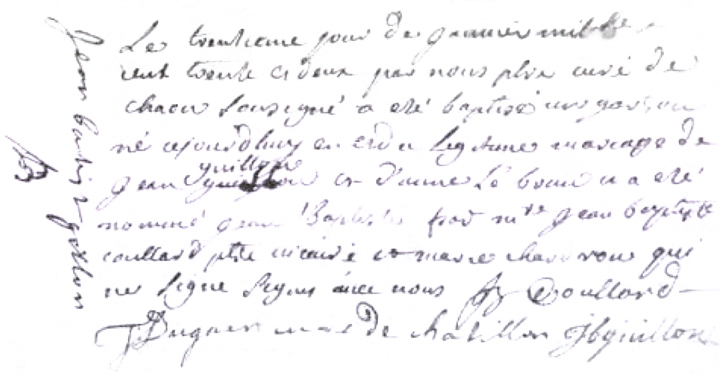 Jean batiste guillon
Le trentieme jour de janvier mil sept
cent trente et deux par nous ptre curé de
soussigné a eté baptisé un garçon
né cejourd'huy en et du legitime mariage de
guillon
jean et d'anne Le brun il a eté
nommé jean Baptiste par mre jean baptiste
coullard ptre vicaire et marie chardron qui
ne signe avec nous Coullard
Duguer de chatillon guillon